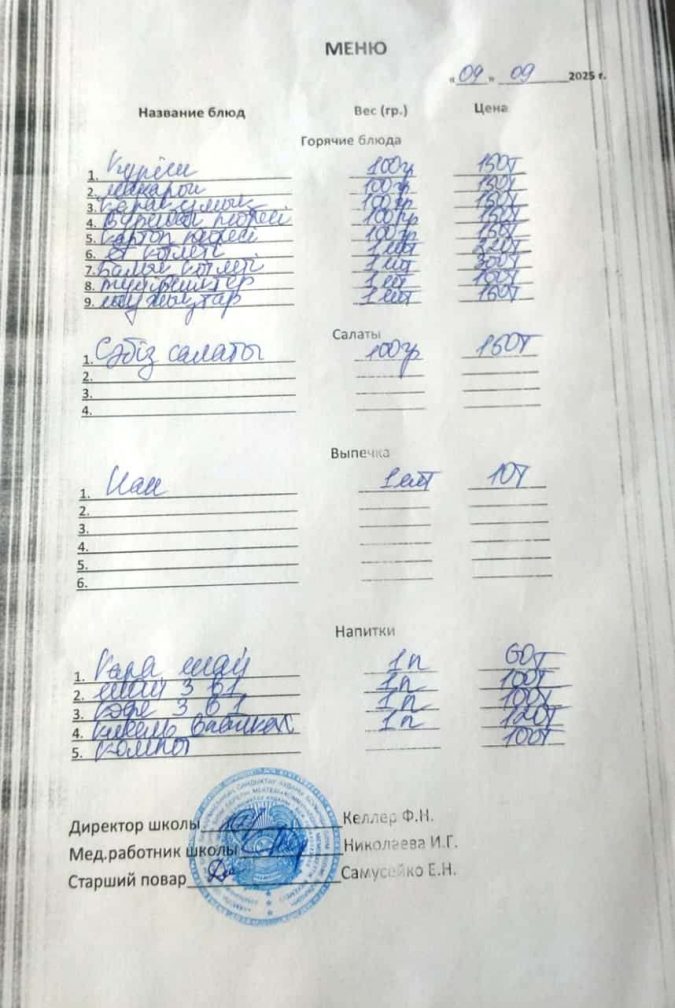 МЕНЮ
«09» 09 2025 г.
Название блюд Вес (гр.) Цена
Горячие блюда
1. Күріш 100гр 150т
2. макарон 100гр 150т
3. Қарақұмық 100гр 150т
4. Бұршақ пюресі 100гр 150т
5. картоп пюресі 100гр 150т
6. ет котлеті 1шт
7. Балық котлеті 1шт
8. 1шт
9. шұжықтар 1шт 150т
Салаты
1. Сәбіз салаты 100гр 150т
2.
3.
4.
Выпечка
1. Нан 1шт 10т
2.
3.
4.
5.
6.
Напитки
1. Қара шай 1п 60т
2. шай 3 в 1 1п 100т
3. кофе 3 в 1 1п 100т
4. кисель 1п 120т
5. компот 100т
Директор школы Келлер Ф.Н.
Мед.работник школы Николаева И.Г.
Старший повар Самусейко Е.Н.